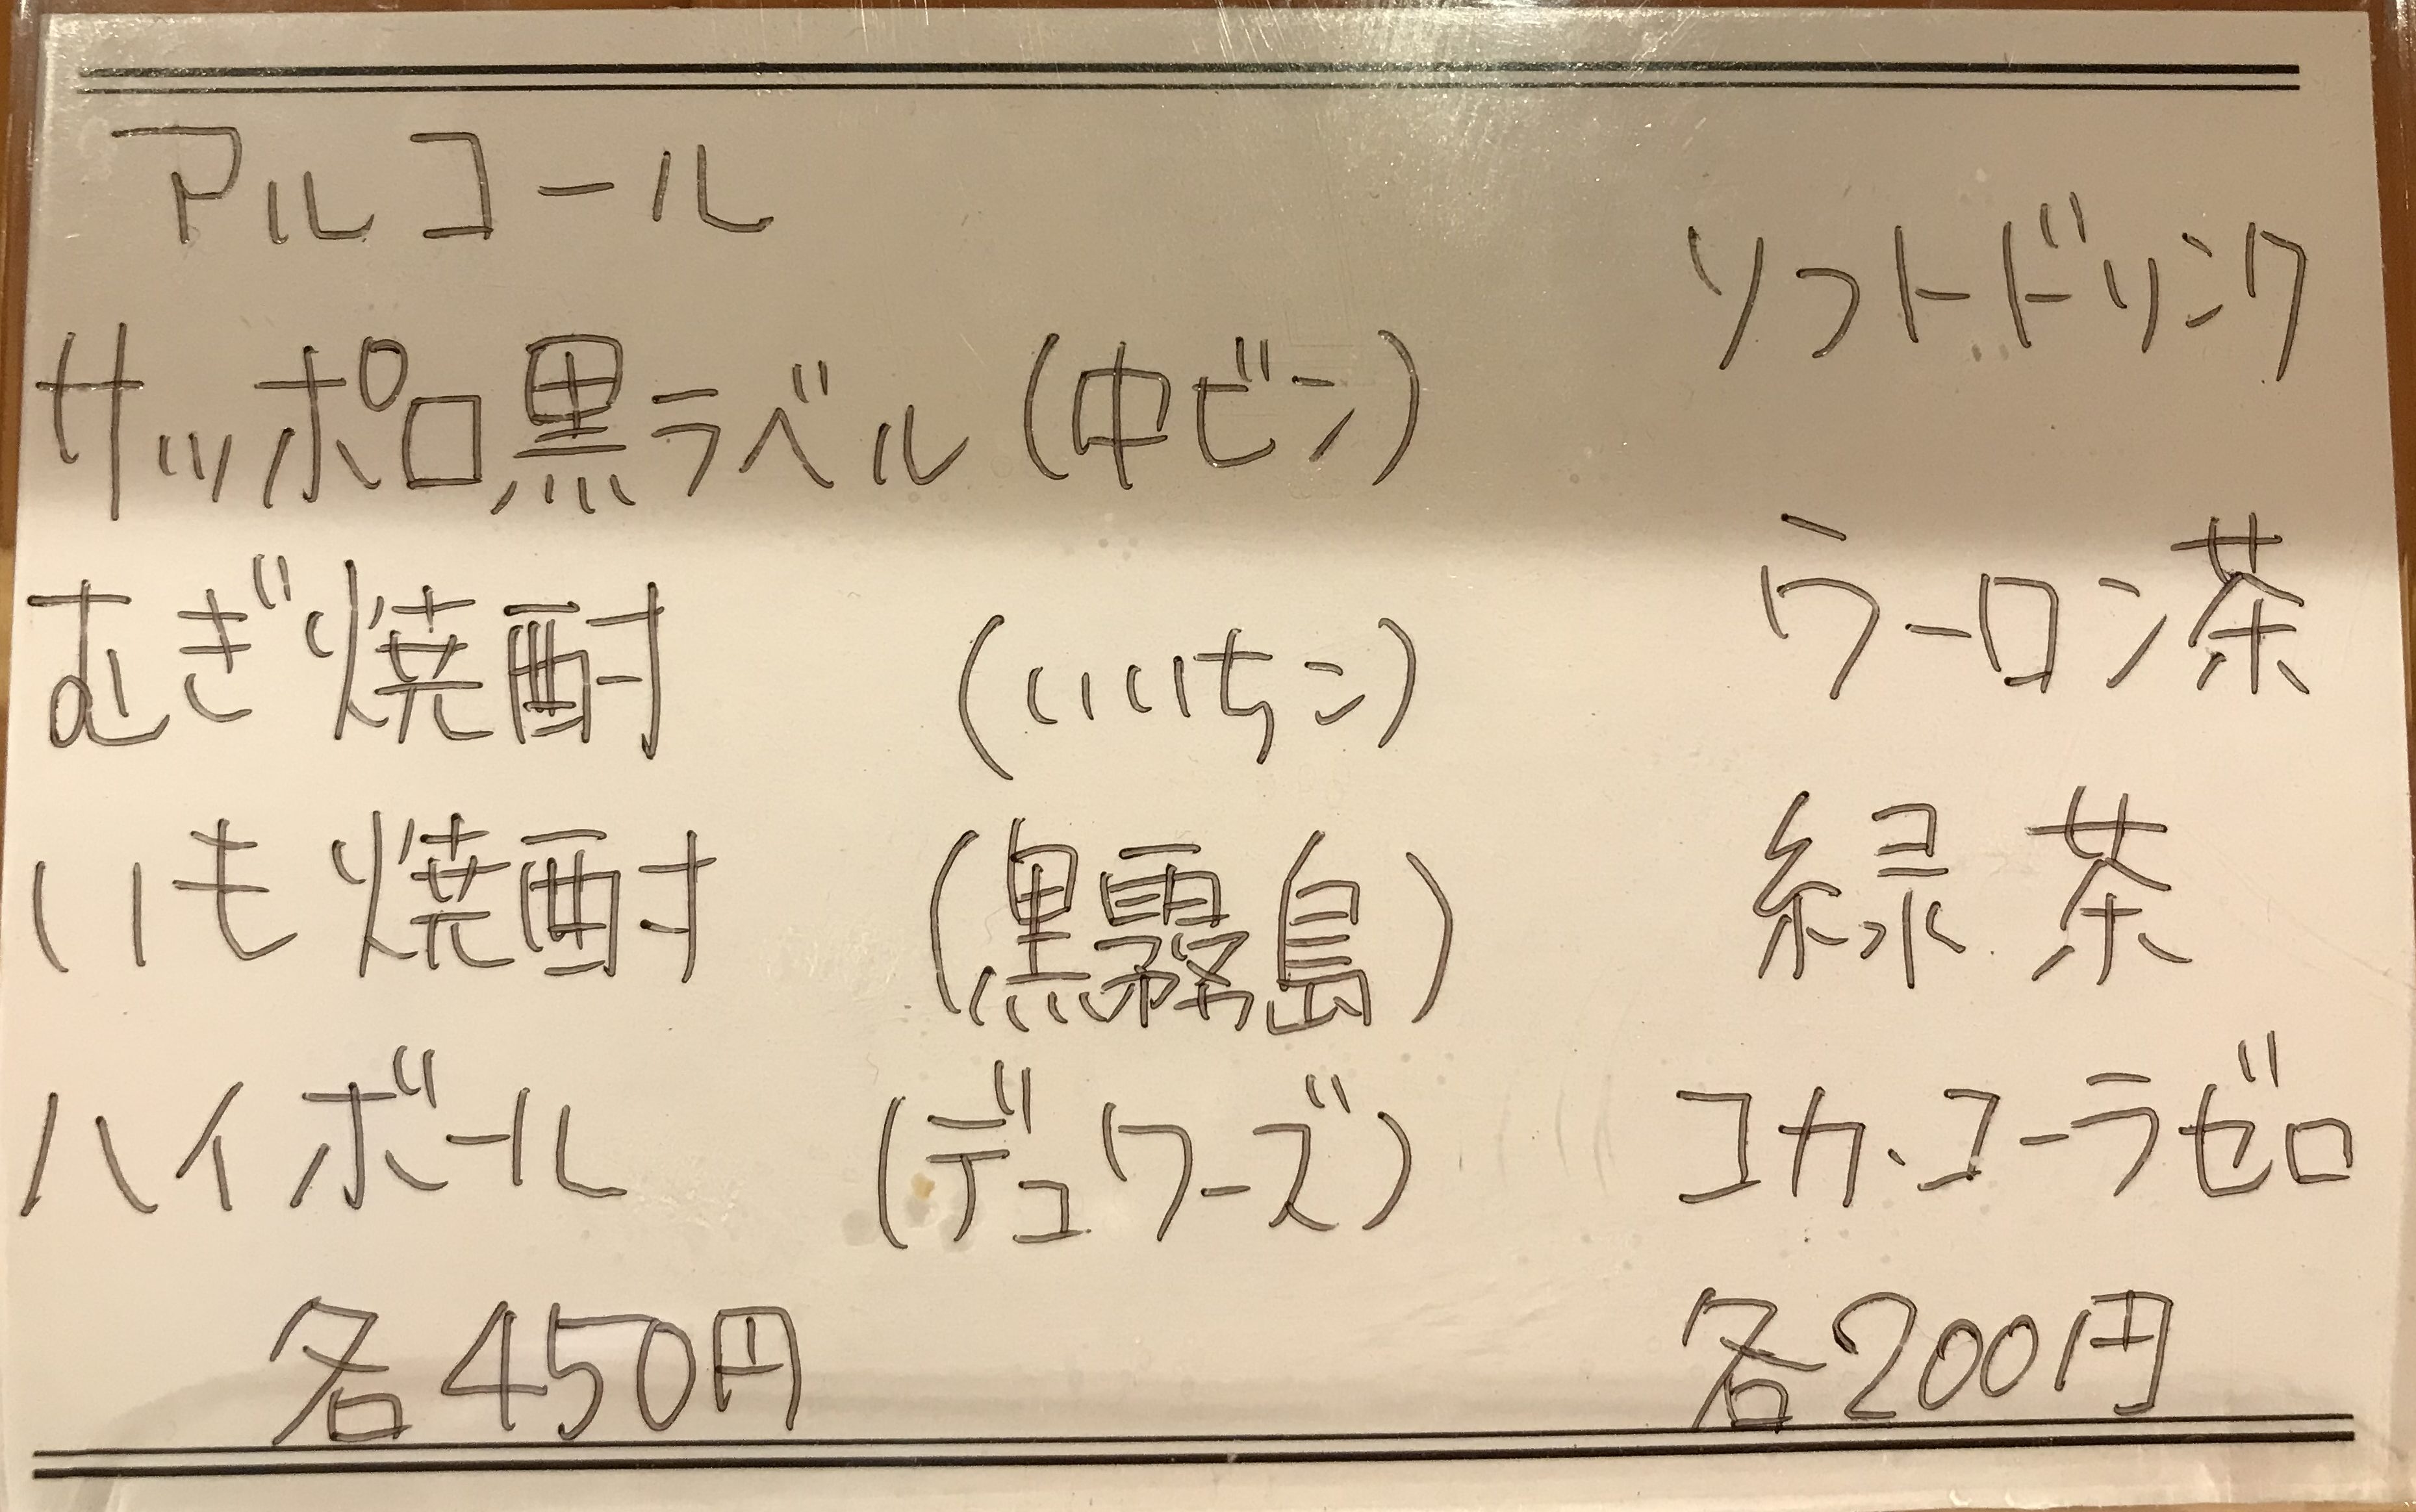 アルコール
サッポロ黒ラベル(中ビン)
むぎ焼酎 (いいちこ)
いも焼酎 (黒霧島)
ハイボール (デュワーズ)
各450円
ソフトドリンク
ウーロン茶
緑茶
コカ・コーラゼロ
各200円